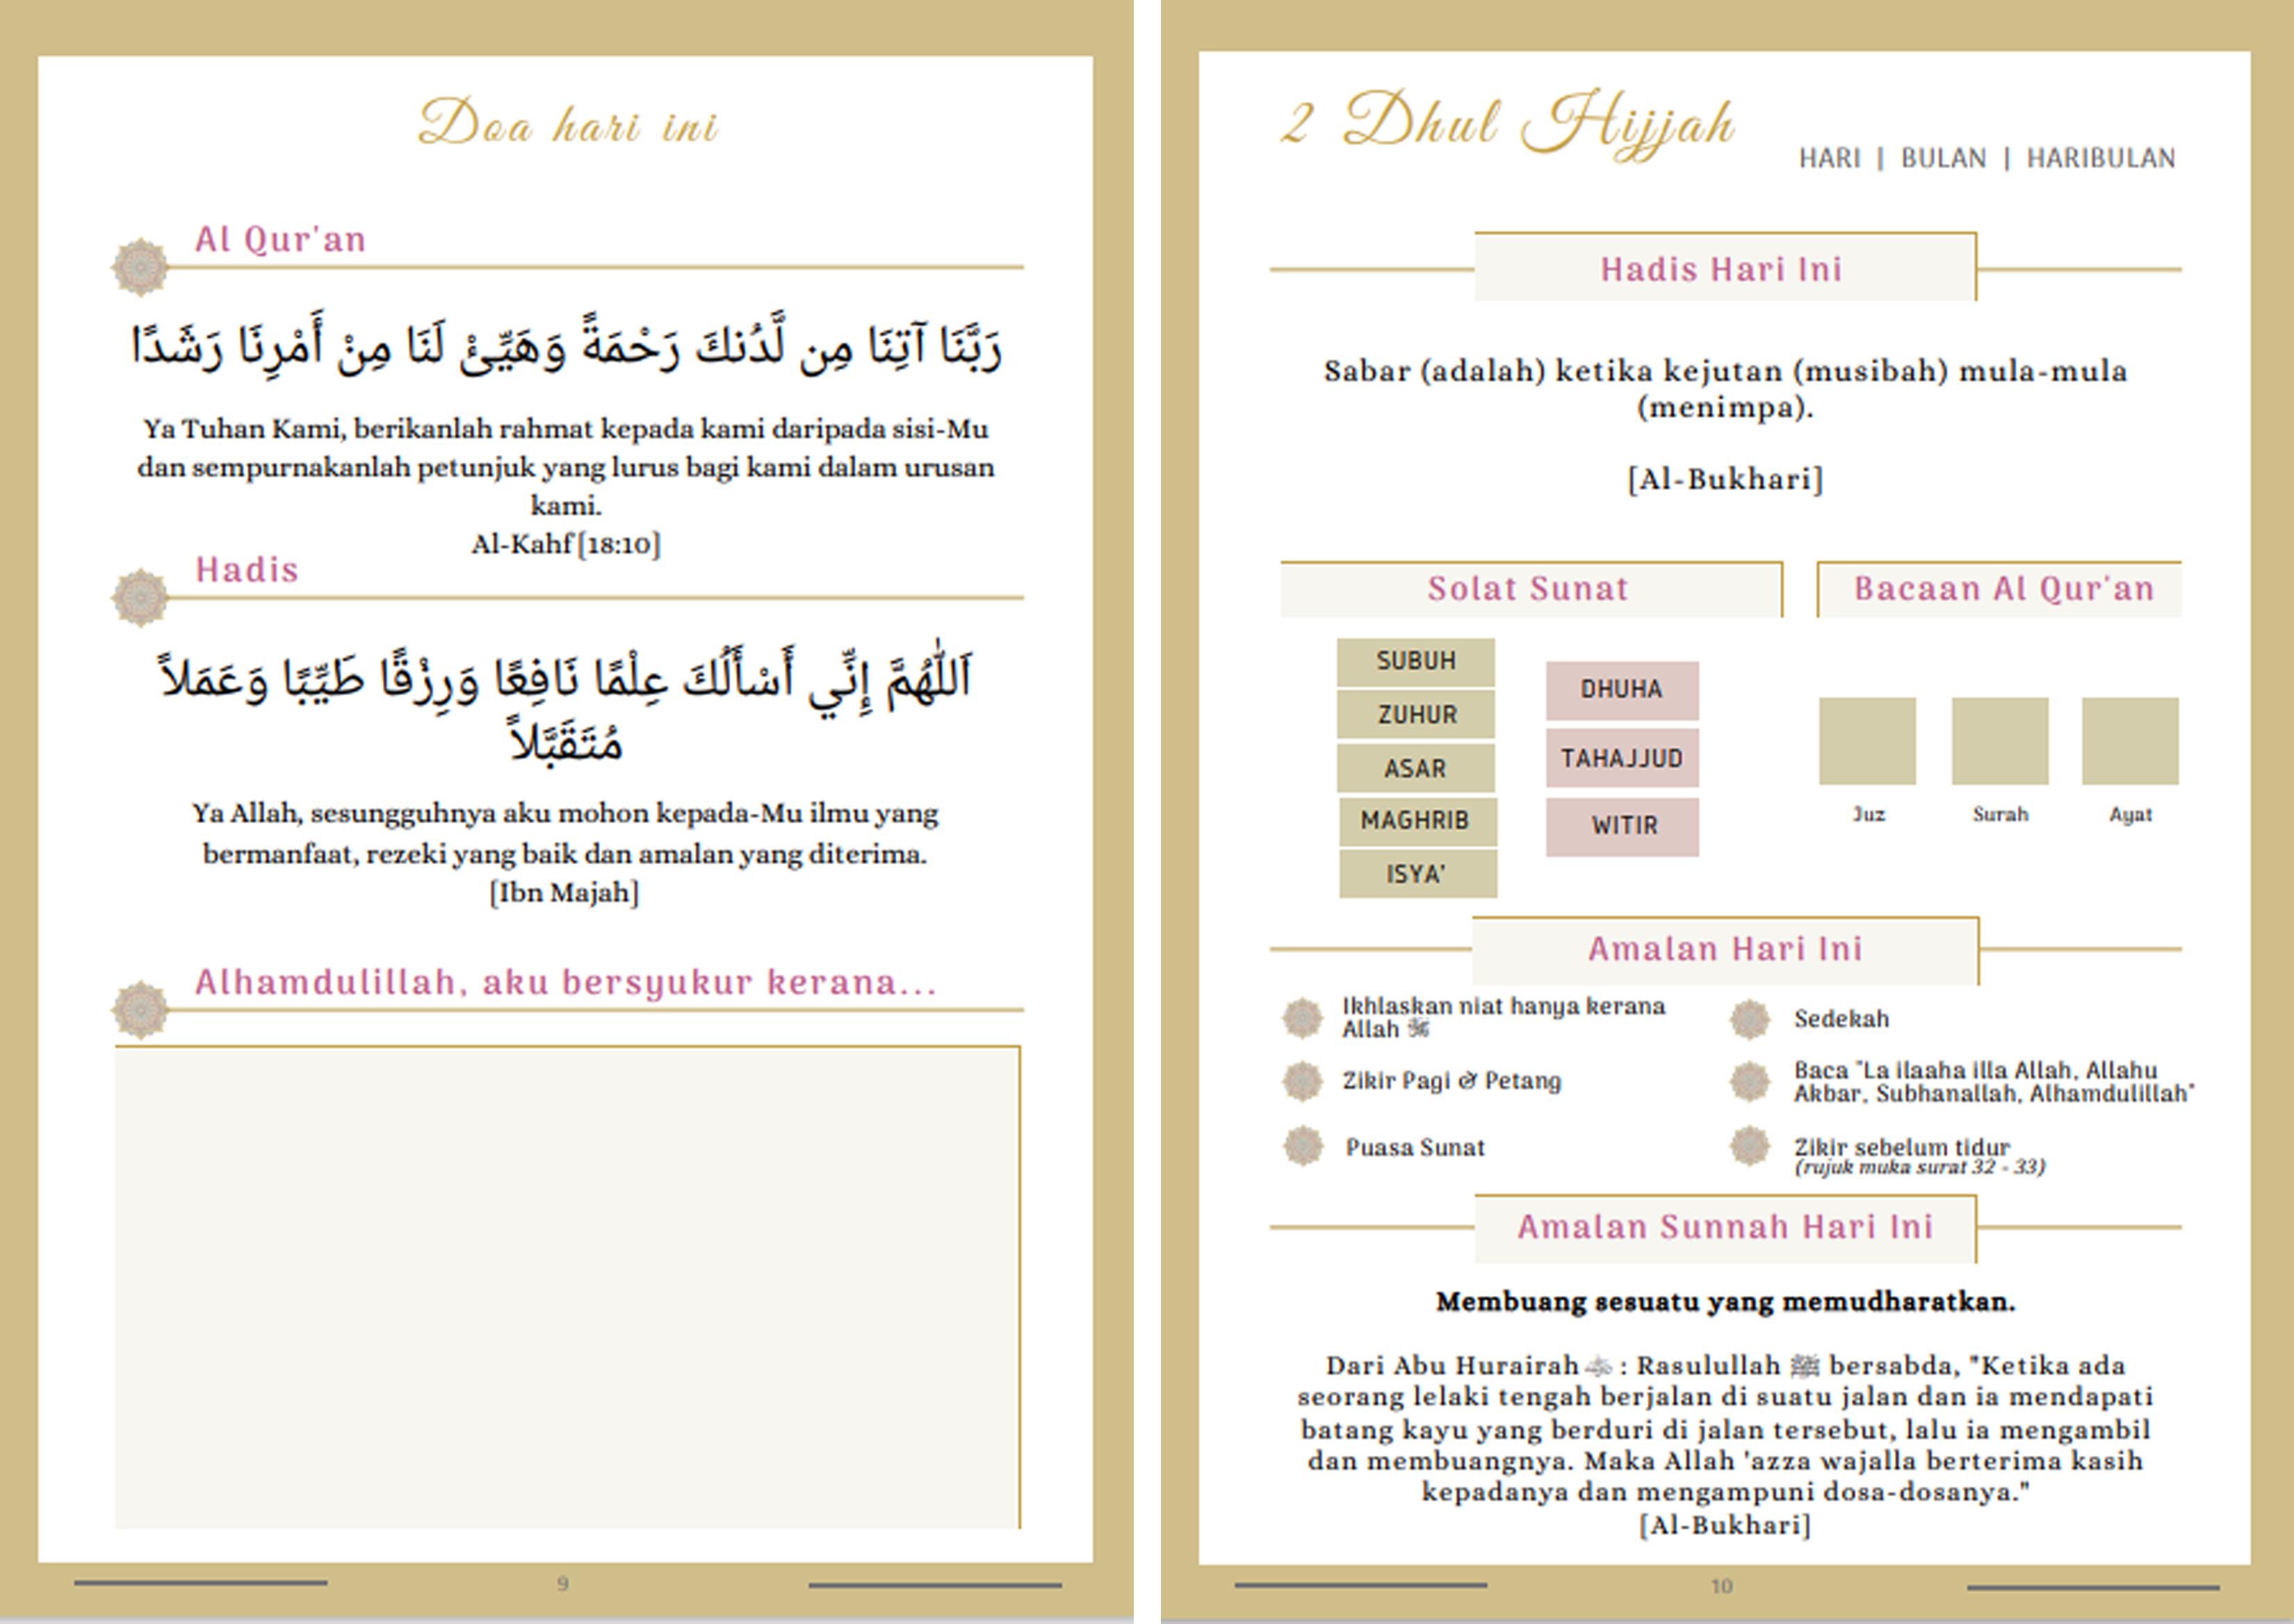 Doa hari ini
Al Qur'an
رَبَّنَا آتِنَا مِن لَّدُنكَ رَحْمَةً وَهَيِّئْ لَنَا مِنْ أَمْرِنَا رَشَدًا
Ya Tuhan Kami, berikanlah rahmat kepada kami daripada sisi-Mu
dan sempurnakanlah petunjuk yang lurus bagi kami dalam urusan
kami.
Al-Kahf [18:10]
Hadis
اَللّٰهُمَّ إِنِّي أَسْأَلُكَ عِلْمًا نَافِعًا وَرِزْقًا طَيِّبًا وَعَمَلاً
مُتَقَبَّلاً
Ya Allah, sesungguhnya aku mohon kepada-Mu ilmu yang
bermanfaat, rezeki yang baik dan amalan yang diterima.
[Ibn Majah]
Alhamdulillah, aku bersyukur kerana...
9
2 Dhul Hijjah
HARI | BULAN | HARIBULAN
Hadis Hari Ini
Sabar (adalah) ketika kejutan (musibah) mula-mula
(menimpa).
[Al-Bukhari]
Solat Sunat
SUBUH
ZUHUR
ASAR
MAGHRIB
ISYA'
DHUHA
TAHAJJUD
WITIR
Bacaan Al Qur'an
Juz
Surah
Ayat
Amalan Hari Ini
Ikhlaskan niat hanya kerana
Allah
Zikir Pagi & Petang
Puasa Sunat
Sedekah
Baca "La ilaaha illa Allah, Allahu
Akbar, Subhanallah, Alhamdulillah"
Zikir sebelum tidur
(rujuk muka surat 32 - 33)
Amalan Sunnah Hari Ini
Membuang sesuatu yang memudharatkan.
Dari Abu Hurairah : Rasulullah ﷺ bersabda, "Ketika ada
seorang lelaki tengah berjalan di suatu jalan dan ia mendapati
batang kayu yang berduri di jalan tersebut, lalu ia mengambil
dan membuangnya. Maka Allah 'azza wajalla berterima kasih
kepadanya dan mengampuni dosa-dosanya."
[Al-Bukhari]
10